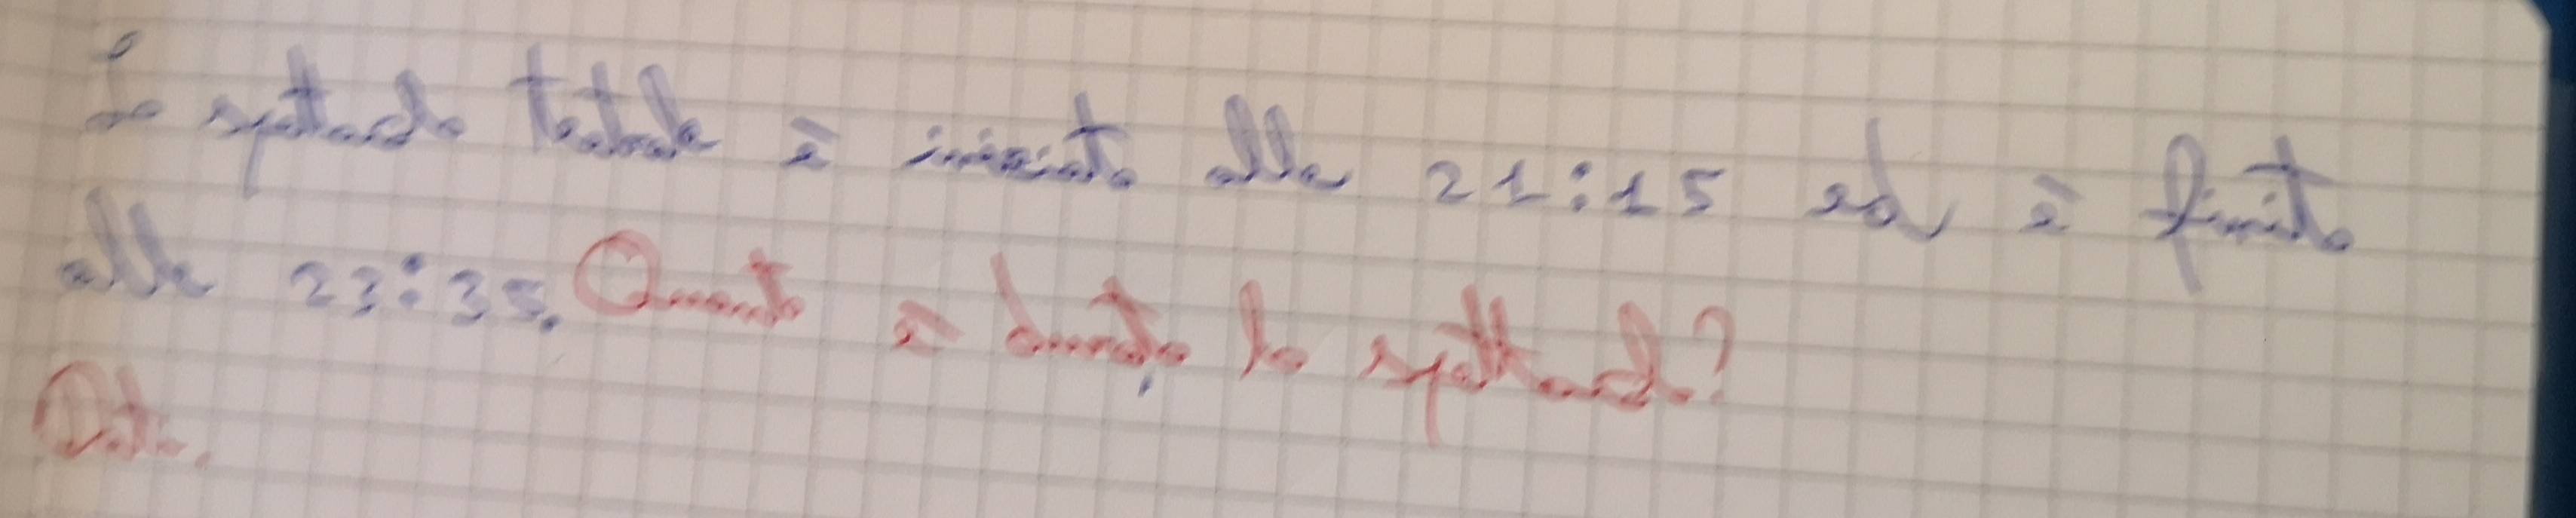 Lo spettacolo teatrale è iniziato alle 21:15 ed è finito
alle 23:35. Quanto è durato lo spettacolo?
Dati.